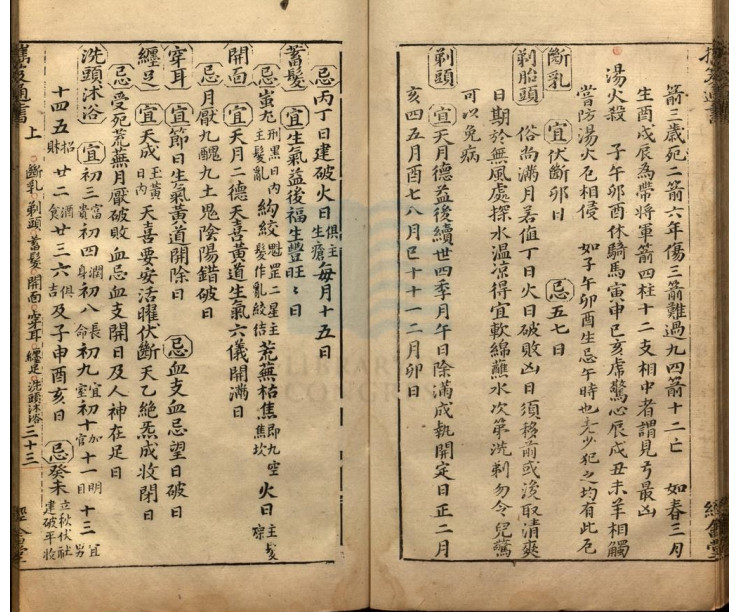 箭三歲死二箭六年傷三箭難過九四箭十二亡 如春三月
生酉戌辰為帶將軍箭四柱十二支相中者謂見弓最凶
湯火殺 子午卯酉休騎馬寅申巳亥虎驚心辰戌丑未羊相觸
當防湯火厄相侵 如子午卯酉生忌午時也老少犯之均有此厄
斷乳 宜伏斷卯日 忌五七日
剃胎頭 俗尚滿月若值丁日火日破敗凶日須移前或後取清爽
日期於無風處探水溫涼得宜軟綿蘸水次第洗剃勿令兒驚
可以免病
剃頭 宣天月德益後續世四季月午日除滿成執開定日正二月
亥四五月酉七八月巳十十一二月卯日
忌丙丁日建破火日俱主生瘡每月十五日
蓄髮 宜生氣益後福生豐旺〻日
忌蚩尤主髮亂刑黑日內絢絞髮作亂絞結魁罡二星主荒蕪枯焦即九空焦坎火日主髮
開面 宜天月二德天喜黃道生氣六儀開滿日
忌月厭九醜九土鬼陰陽錯破日
穿耳 宜節日生氣黃道開除日 忌血支血忌望日破日
纏足 宜天成玉黃日內天喜要安活曜伏斷天乙絕炁成收閉日
忌受死荒蕪月厭破敗血忌血支開日及人神在足日
洗頭沐浴 宜初三富貴初四潤身初八長命初九宜室初十加官十一明目十三宜男
十四五招財廿二酒食廿三六俱吉及子申酉亥日 忌癸未立秋伏社建破平收
通書 上 斷乳 剃頭 蓄髮 開面 穿耳 纏足 洗頭沐浴 三十三